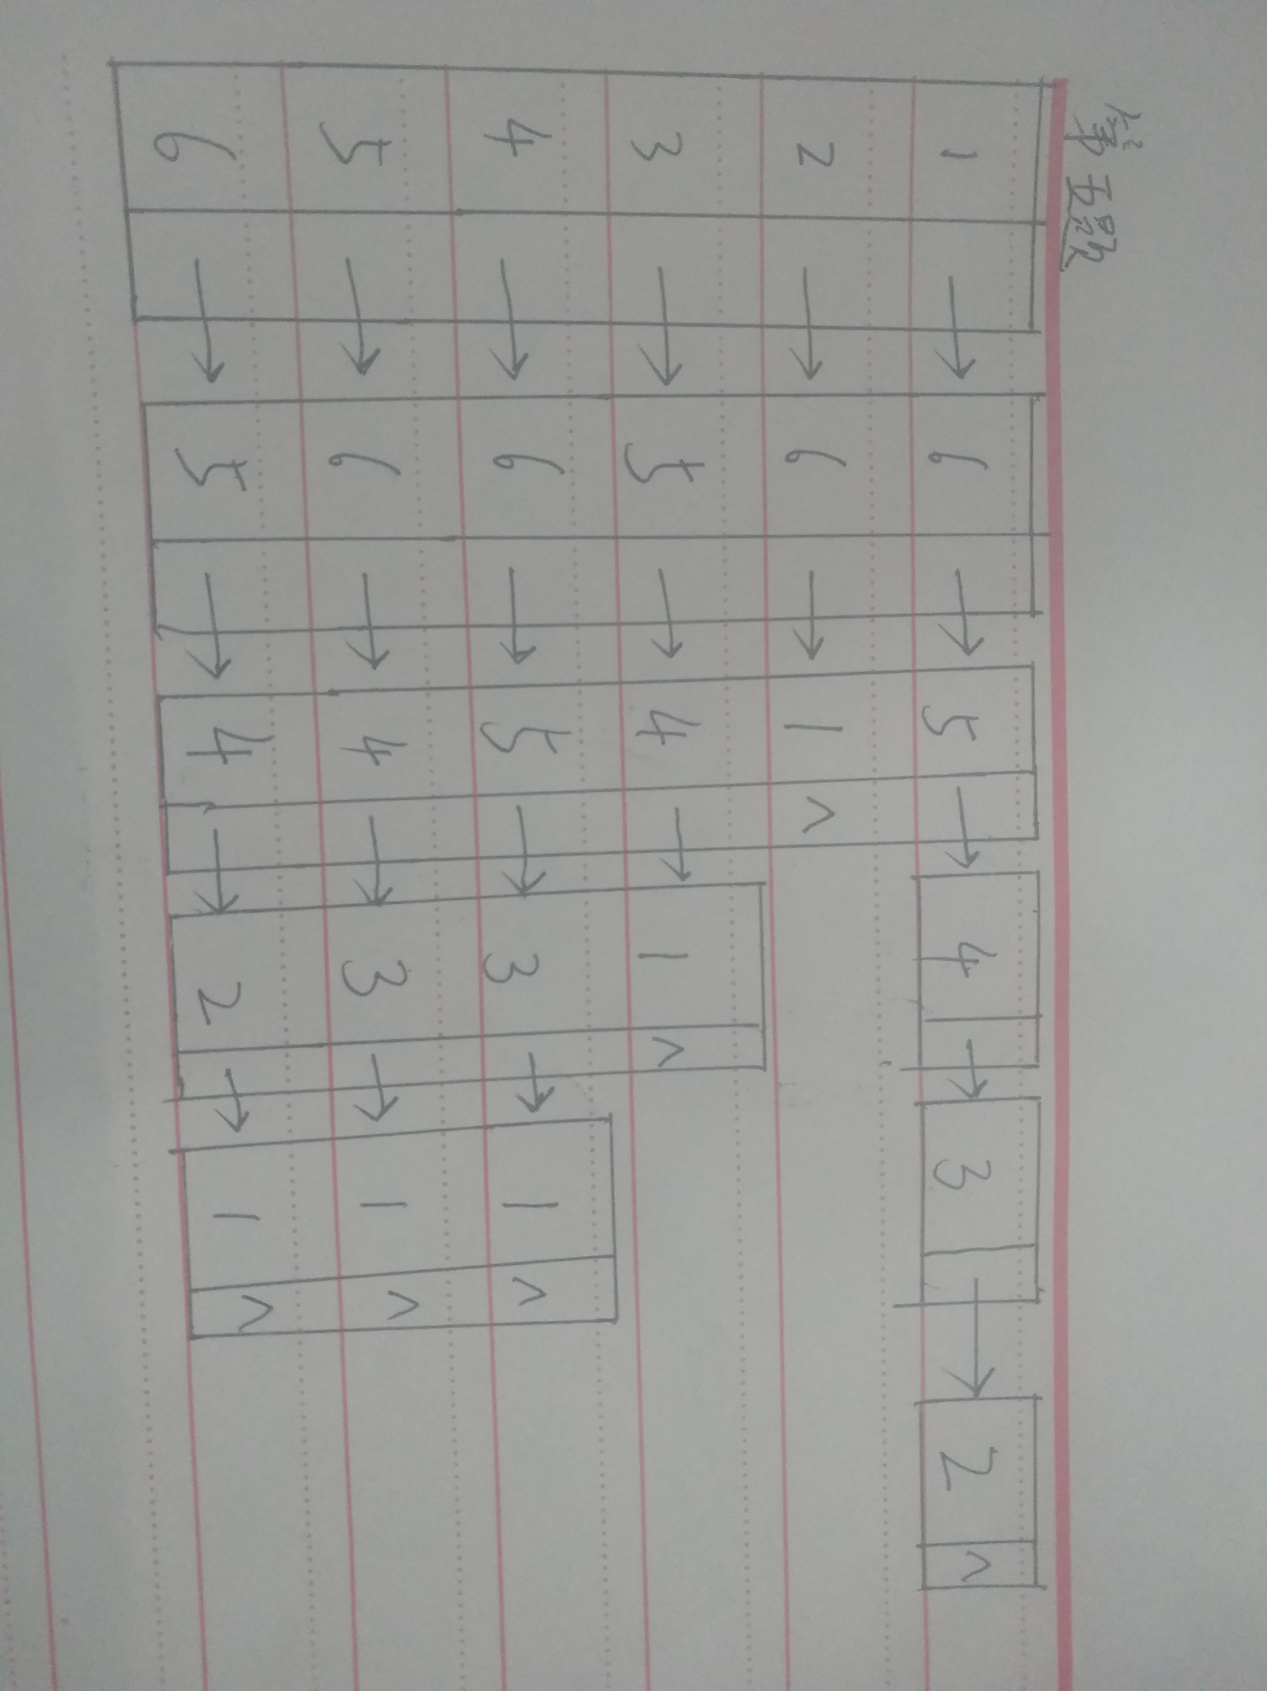 第五题
1 → 6 → 5 → 4 → 3 → 2 ∧
2 → 6 → 1 ∧
3 → 5 → 4 → 1 ∧
4 → 6 → 5 → 3 → 1 ∧
5 → 6 → 4 → 3 → 1 ∧
6 → 5 → 4 → 2 → 1 ∧